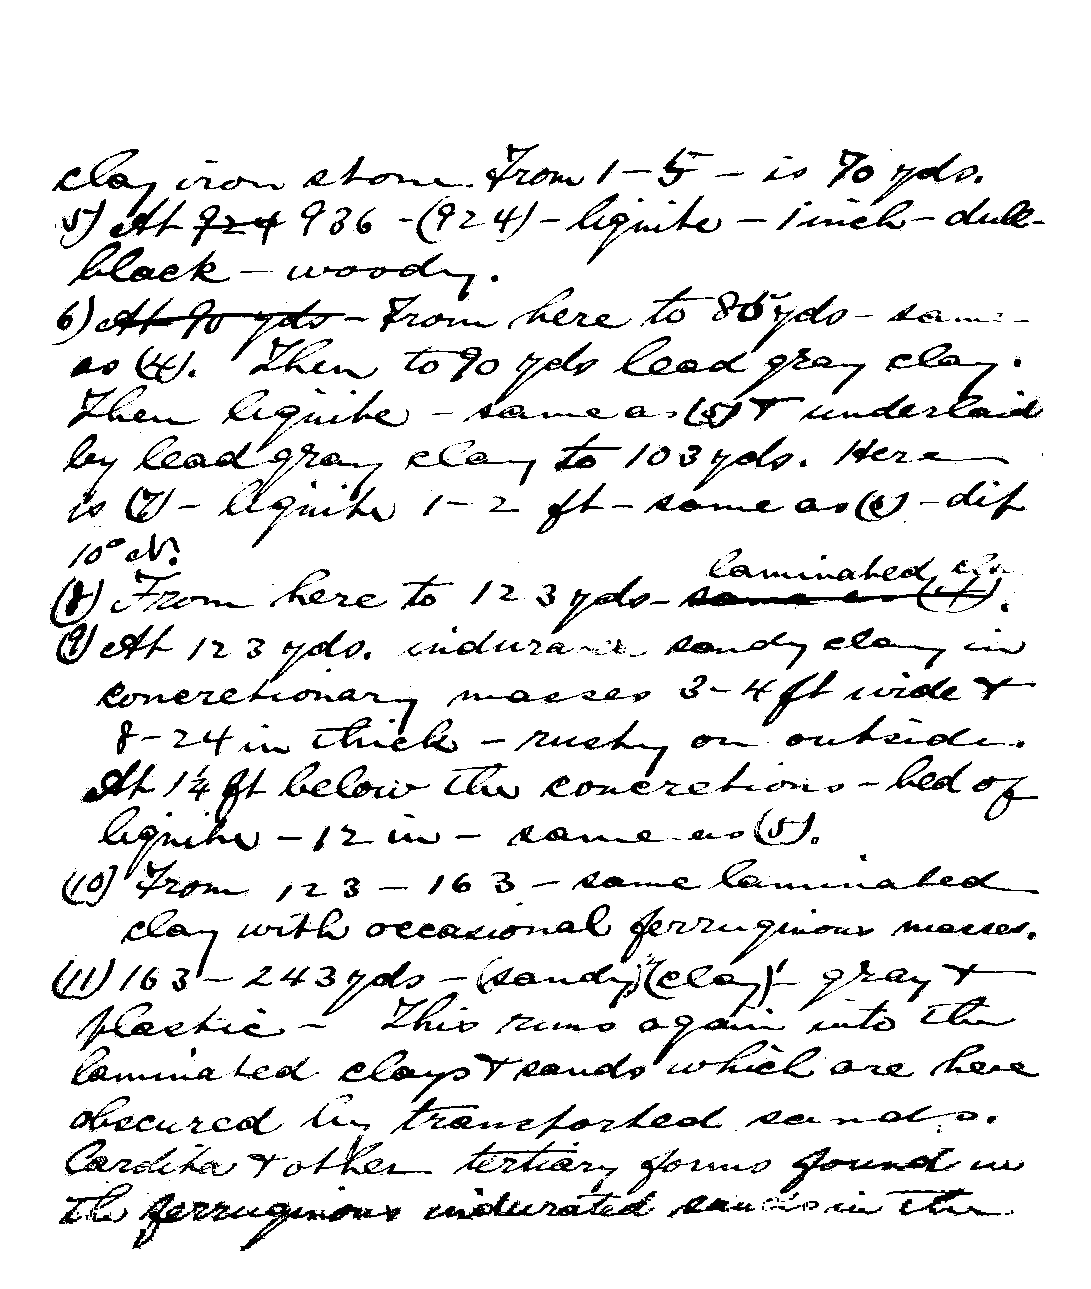 clay iron stone. From 1 – 5 – is 70 yds.
5) At 924 936 - (924) – lignite – 1 inch – dull
black – woody.
6) At 90 yds – From here to 85 yds – same
as (4). Then to 90 yds lead gray clay.
Then lignite – same as (5) & underlaid
by lead gray clay to 103 yds. Here
is (7) – lignite 1–2 ft – same as – dip
10° N.
laminated clay
(8) From here to 123 yds – same as (4).
(9) At 123 yds. indurated sandy clay in
concretionary masses 3–4 ft wide &
8–24 in thick – rusty on outside.
At 1¼ ft below the concretions – bed of
lignite – 12 in – same as (5).
(10) From 123 – 163 – same laminated
clay with occasional ferruginous masses.
(11) 163 – 243 yds – (sandy) (clay) – gray &
plastic – This runs again into the
laminated clays & sands which are here
obscured by transported sands.
Cardita & other tertiary forms found in
the ferruginous indurated sands in the